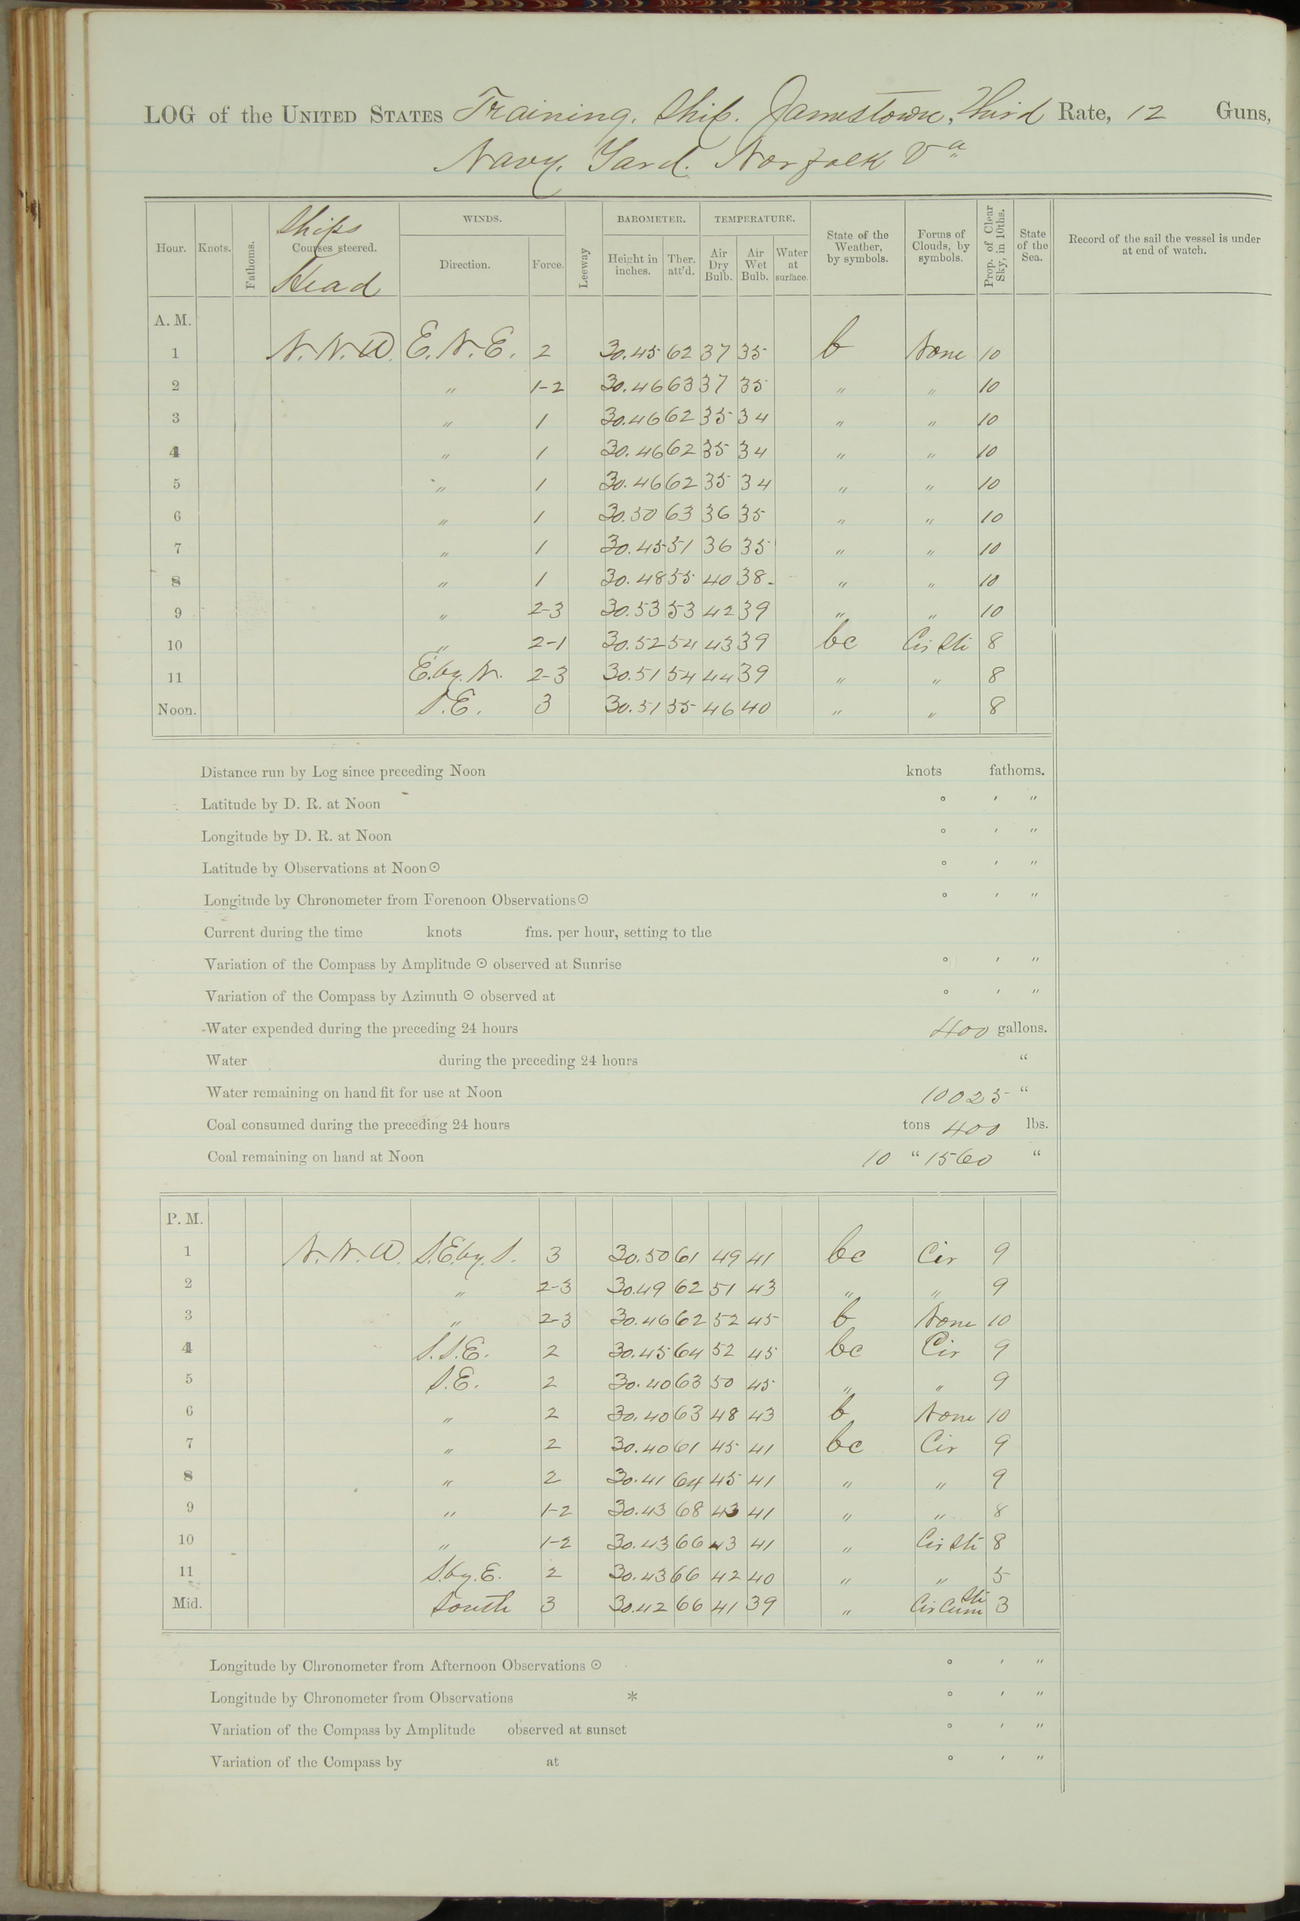 LOG of the UNITED STATES Training Ship. Jamestown, Third Rate, 12 Guns,
Navy. Yard. Norfolk Va
Hour. Knots. Fathoms. Ships Courses steered. Head WINDS. Direction. Force. Leeway BAROMETER. Height in inches. Ther. att'd. TEMPERATURE. Air Dry Bulb. Air Wet Bulb. Water at surface. State of the Weather, by symbols. Forms of Clouds, by symbols. Prop. of Clear Sky, in 10ths. State of the Sea. Record of the sail the vessel is under at end of watch.
A. M.
1 N.N.W. E.N.E. 2 30.45 62 37 35 b None 10
2 " 1-2 30.46 63 37 35 " " 10
3 " 1 30.46 62 35 34 " " 10
4 " 1 30.46 62 35 34 " " 10
5 " 1 30.46 62 35 34 " " 10
6 " 1 30.50 63 36 35 " " 10
7 " 1 30.45 51 36 35 " " 10
8 " 1 30.48 55 40 38 " " 10
9 " 2-3 30.53 53 42 39 " " 10
10 " 2-1 30.52 54 43 39 bc Cir Sti 8
11 E.by.N. 2-3 30.51 54 44 39 " " 8
Noon. S.E. 3 30.51 55 46 40 " " 8
Distance run by Log since preceding Noon knots fathoms.
Latitude by D. R. at Noon ° ′ ″
Longitude by D. R. at Noon ° ′ ″
Latitude by Observations at Noon ☉ ° ′ ″
Longitude by Chronometer from Forenoon Observations ☉ ° ′ ″
Current during the time knots fms. per hour, setting to the
Variation of the Compass by Amplitude ☉ observed at Sunrise ° ′ ″
Variation of the Compass by Azimuth ☉ observed at ° ′ ″
Water expended during the preceding 24 hours 400 gallons.
Water during the preceding 24 hours "
Water remaining on hand fit for use at Noon 10025 "
Coal consumed during the preceding 24 hours tons 400 lbs.
Coal remaining on hand at Noon 10 " 1560 "
P. M.
1 N.N.W. S.E.by.S. 3 30.50 61 49 41 bc Cir 9
2 " 2-3 30.49 62 51 43 " " 9
3 " 2-3 30.46 62 52 45 b None 10
4 S.S.E. 2 30.45 64 52 45 bc Cir 9
5 S.E. 2 30.40 63 50 45 " " 9
6 " 2 30.40 63 48 43 b None 10
7 " 2 30.40 61 45 41 bc Cir 9
8 " 2 30.41 64 45 41 " " 9
9 " 1-2 30.43 68 43 41 " " 8
10 " 1-2 30.43 66 43 41 " Cir Sti 8
11 S.by.E. 2 30.43 66 42 40 " " 5
Mid. South 3 30.42 66 41 39 " Cir Cum Sti 3
Longitude by Chronometer from Afternoon Observations ☉ ° ′ ″
Longitude by Chronometer from Observations * ° ′ ″
Variation of the Compass by Amplitude observed at sunset ° ′ ″
Variation of the Compass by at ° ′ ″